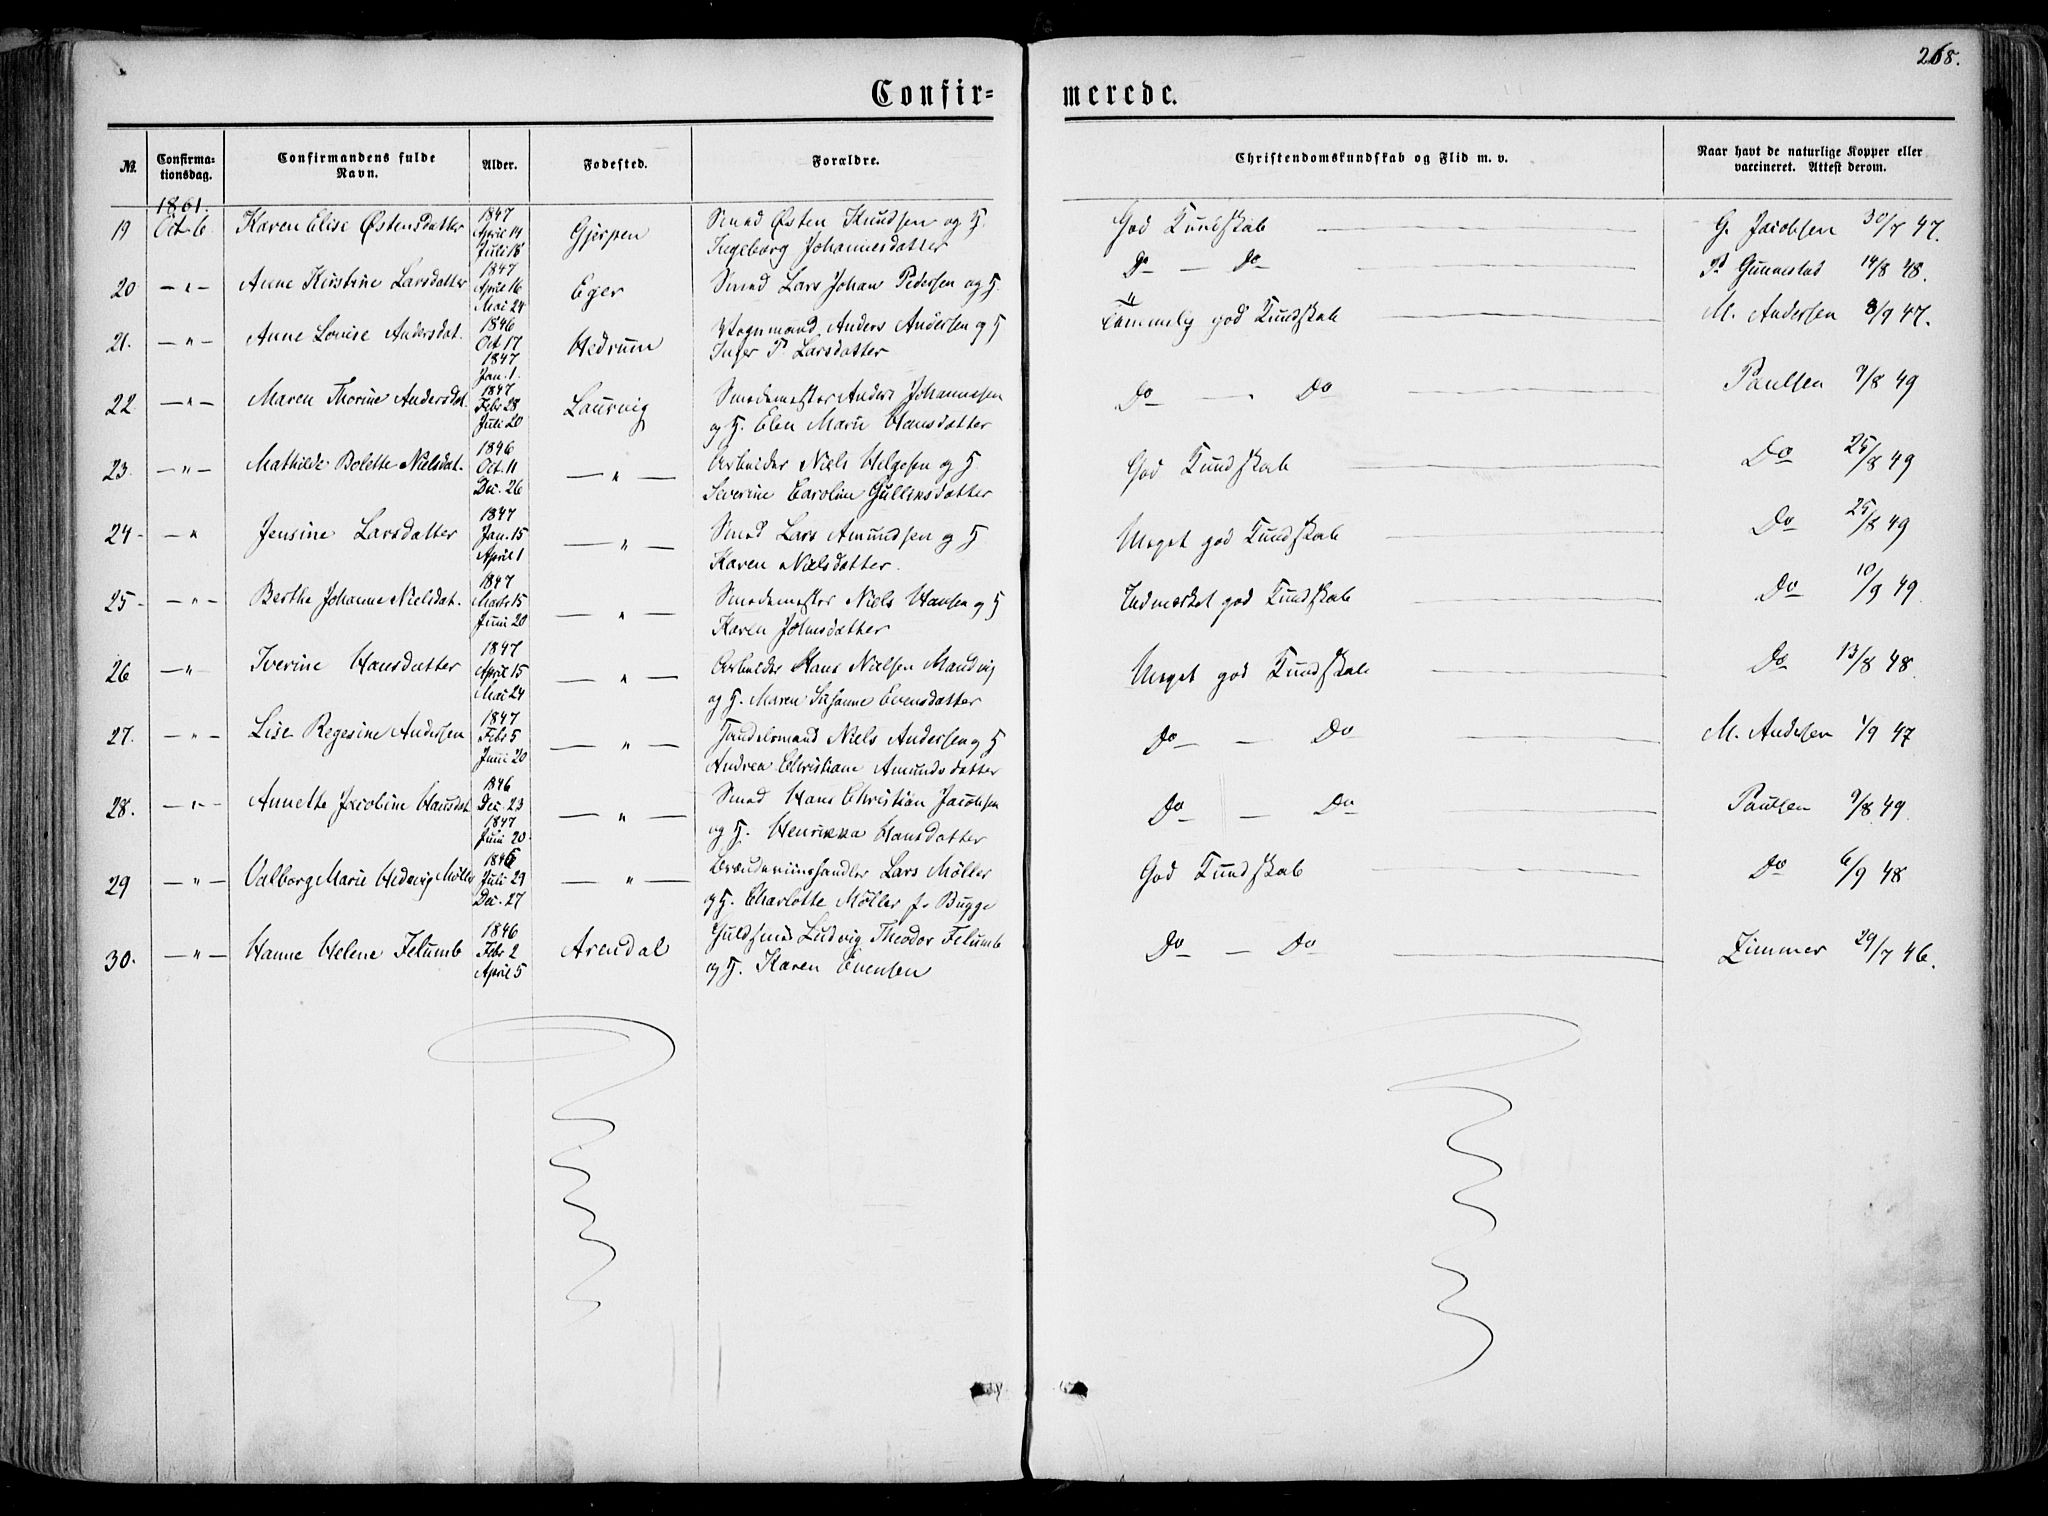 268.
Confir-
merede.
№
Confirma-
tionsdag.
Confirmandens fulde
Navn.
Alder.
Fødested.
Forældre.
Christendomskundskab og Flid m. v.
Naar havt de naturlige Kopper eller
vaccineret. Attest derom.
1861.
19 Oct. 6. Karen Elise Østensdatter 1847 April 14 Juli 18 Gjerpen Smed Østen Knudsen og H.
Ingeborg Johannesdatter
God Kundskab G. Jacobsen 30/7 47.
20 — " — Anne Kirstine Larsdatter 1847 April 16 Mai 24 Eger Smed Lars Johan Pedersen og H.
Do — Do P. Gunnestad 14/8 48.
21. — " — Anne Louise Andersdat. 1846 Oct 17 1847 Jan. 1. Hedrum Vognmand Anders Andersen og H
Inger P. Larsdatter
Temmelig god Kundskab M. Andersen 8/9 47.
22 — " — Maren Thorine Andersdat. 1847 Febr 28 Juli 20 Laurvig Smedemester Anders Johannesen
og H. Elen Marie Hansdatter
Do — Do Paulsen 9/8 49
23. — " — Mathilde Bolette Nielsdat. 1846 Oct. 11 Dec. 26 — " — Arbeider Niels Helgesen og H
Severine Caroline Gullinsdatter
God Kundskab Do 25/8 49
24 — " Jensine Larsdatter 1847 Jan. 15 April 1 — " — Smed Lars Amundsen og H
Karen Nielsdatter.
Meget god Kundskab Do 25/8 49
25 — " — Berthe Johanne Nielsdat. 1847 Marts 15 Juni 20 — " — Smedemester Niels Hansen og H
Karen Johnsdatter
Udmærket god Kundskab Do 10/9 49
26 — " — Iverine Hansdatter 1847 April 15 Mai 24 — " — Arbeider Hans Nielsen Mandvig
og H. Maren Susanne Evensdatter
Meget god Kundskab Do 13/8 48.
27. — " — Lise Regesine Andersen 1847 Febr 5 Juni 20 — " — Handelsmand Niels Andersen og H
Andrea Christiane Amundsdatter
Do — Do M. Andersen 1/9 47
28. — " — Annette Jacobine Hansdat. 1846 Dec. 23 1847 Juni 20 — " — Smed Hans Christian Jacobsen
og H. Henrikka Hansdatter
Do — Do Paulsen 9/8 49.
29 — " — Valborg Marie Hedevig Möller 1846 Juli 29 Dec. 27 — " — Lars Möller
og H. Charlotte Möller f. Bugge
God Kundskab Do 6/9 48
30. — " — Hanne Helene Felumb 1846 Febr 2 April 5 Arendal Guldsmed Ludvig Theodor Felumb
og H. Karen Evensen
Do — Do Zimmer 29/7 46.